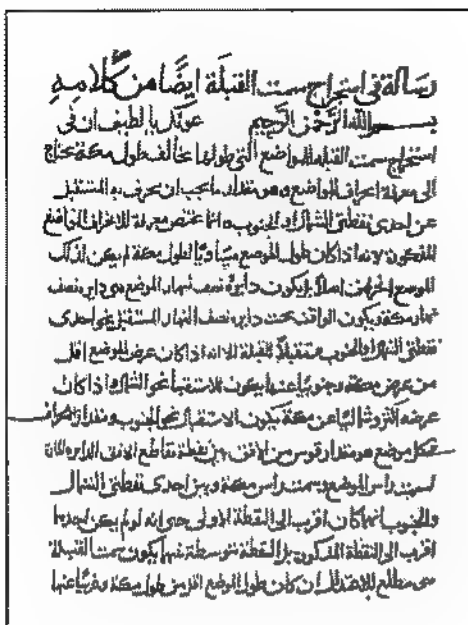 رسالة في استخراج سمت القبلة ايضًا من كلامه
بسم الله الرحمن الرحيم عونك يا لطيف ان في
استخراج سمت القبله للمواضع التي طولها يخالف طول مكة يحتاج
الى معرفة انحراف المواضع وهو مقدار ما يجب ان ينحرف به المستقبل
عن احدى نقطتي الشمال او الجنوب وانما يختص معرفة للانحراف المواضع
المذكورة لانه اذا كان طول الموضع مساويًا لطول مكة لم يكن لذلك
الموضع انحراف اصلا بل يكون دايرة نصف نهار الموضع هي دايرة نصف
نهار مكة ويكون الواقف تحت دايرة نصف النهار المستقبل نحو احدى
نقطتي الشمال والجنوب مستقبلا للقبلة الا انه اذا كان عرض الموضع اقل
من عرض مكة وجنوبيا عنها يكون الاستقبال نحو الشمال واذا كان
عرضه اكثر وشماليا عن مكة يكون الاستقبال نحو الجنوب ومقدار انحراف
كل موضع هو مقدار قوس من الافق بين نقطة تقاطع الافق الدايرة المارة
لسمت راس الموضع وسمت راس مكة وبين احدى نقطتي الشمال
والجنوب ايهما كان اقرب الى النقطة الاولى حتى انه لو لم يكن احديهما
اقرب الى النقطة المذكورة بل النقطة متوسطة بينهما يكون سمت القبلة
هي مطلع الاعتدال ان كان طول الموضع اقل من طول مكة وغربيا عنها